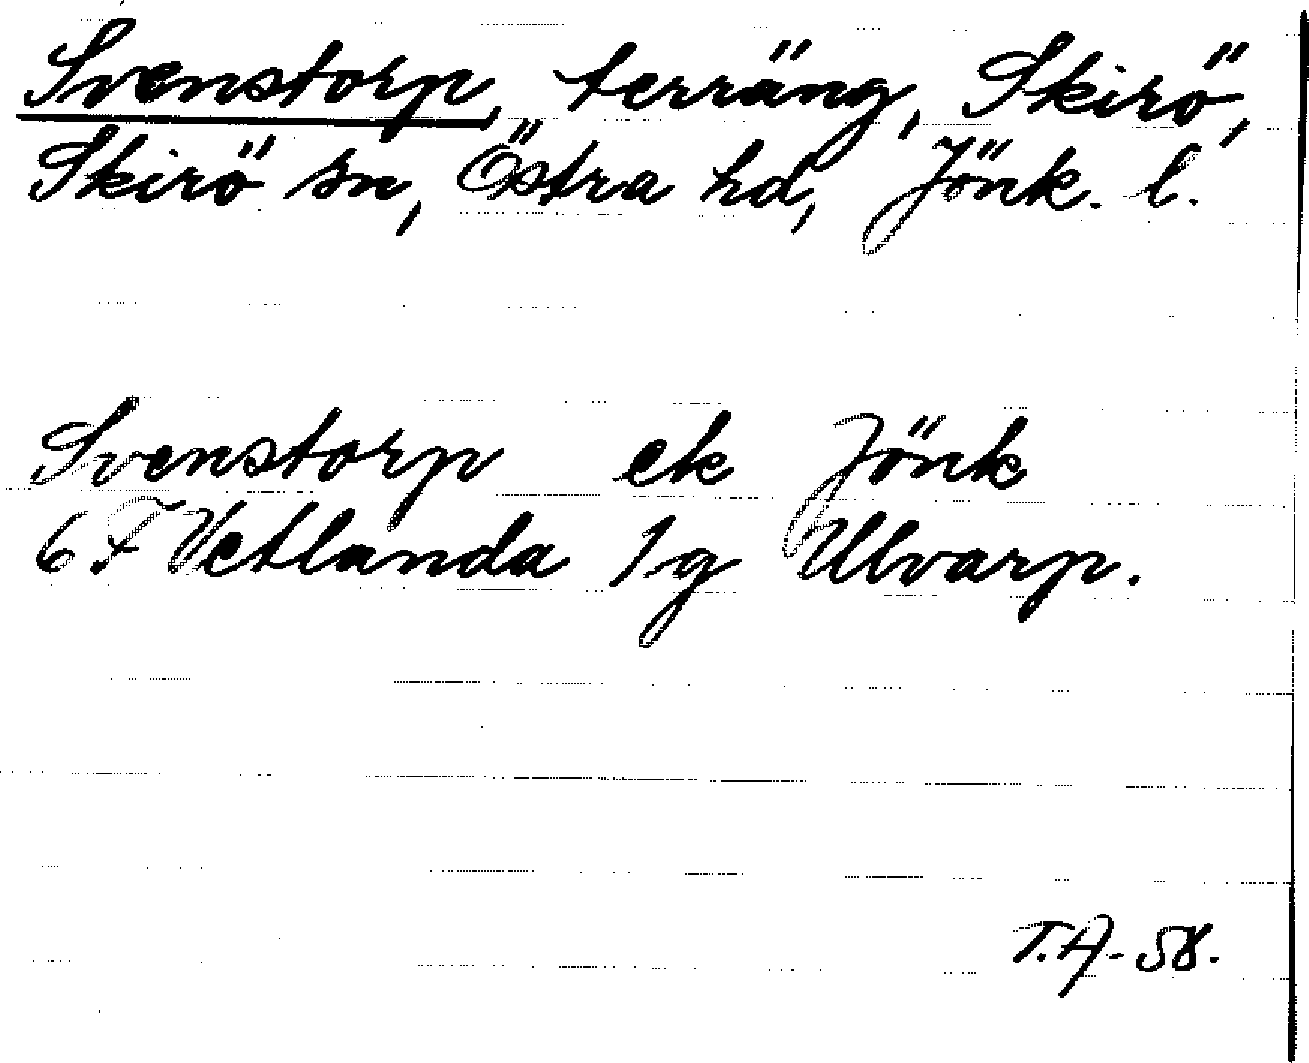 Svenstorp, terräng, Skirö,
Skirö sn, Östra hd, Jönk. l.
Svenstorp ek Jönk
6 F Vetlanda 1 g Ulvarp.
T.A-58.